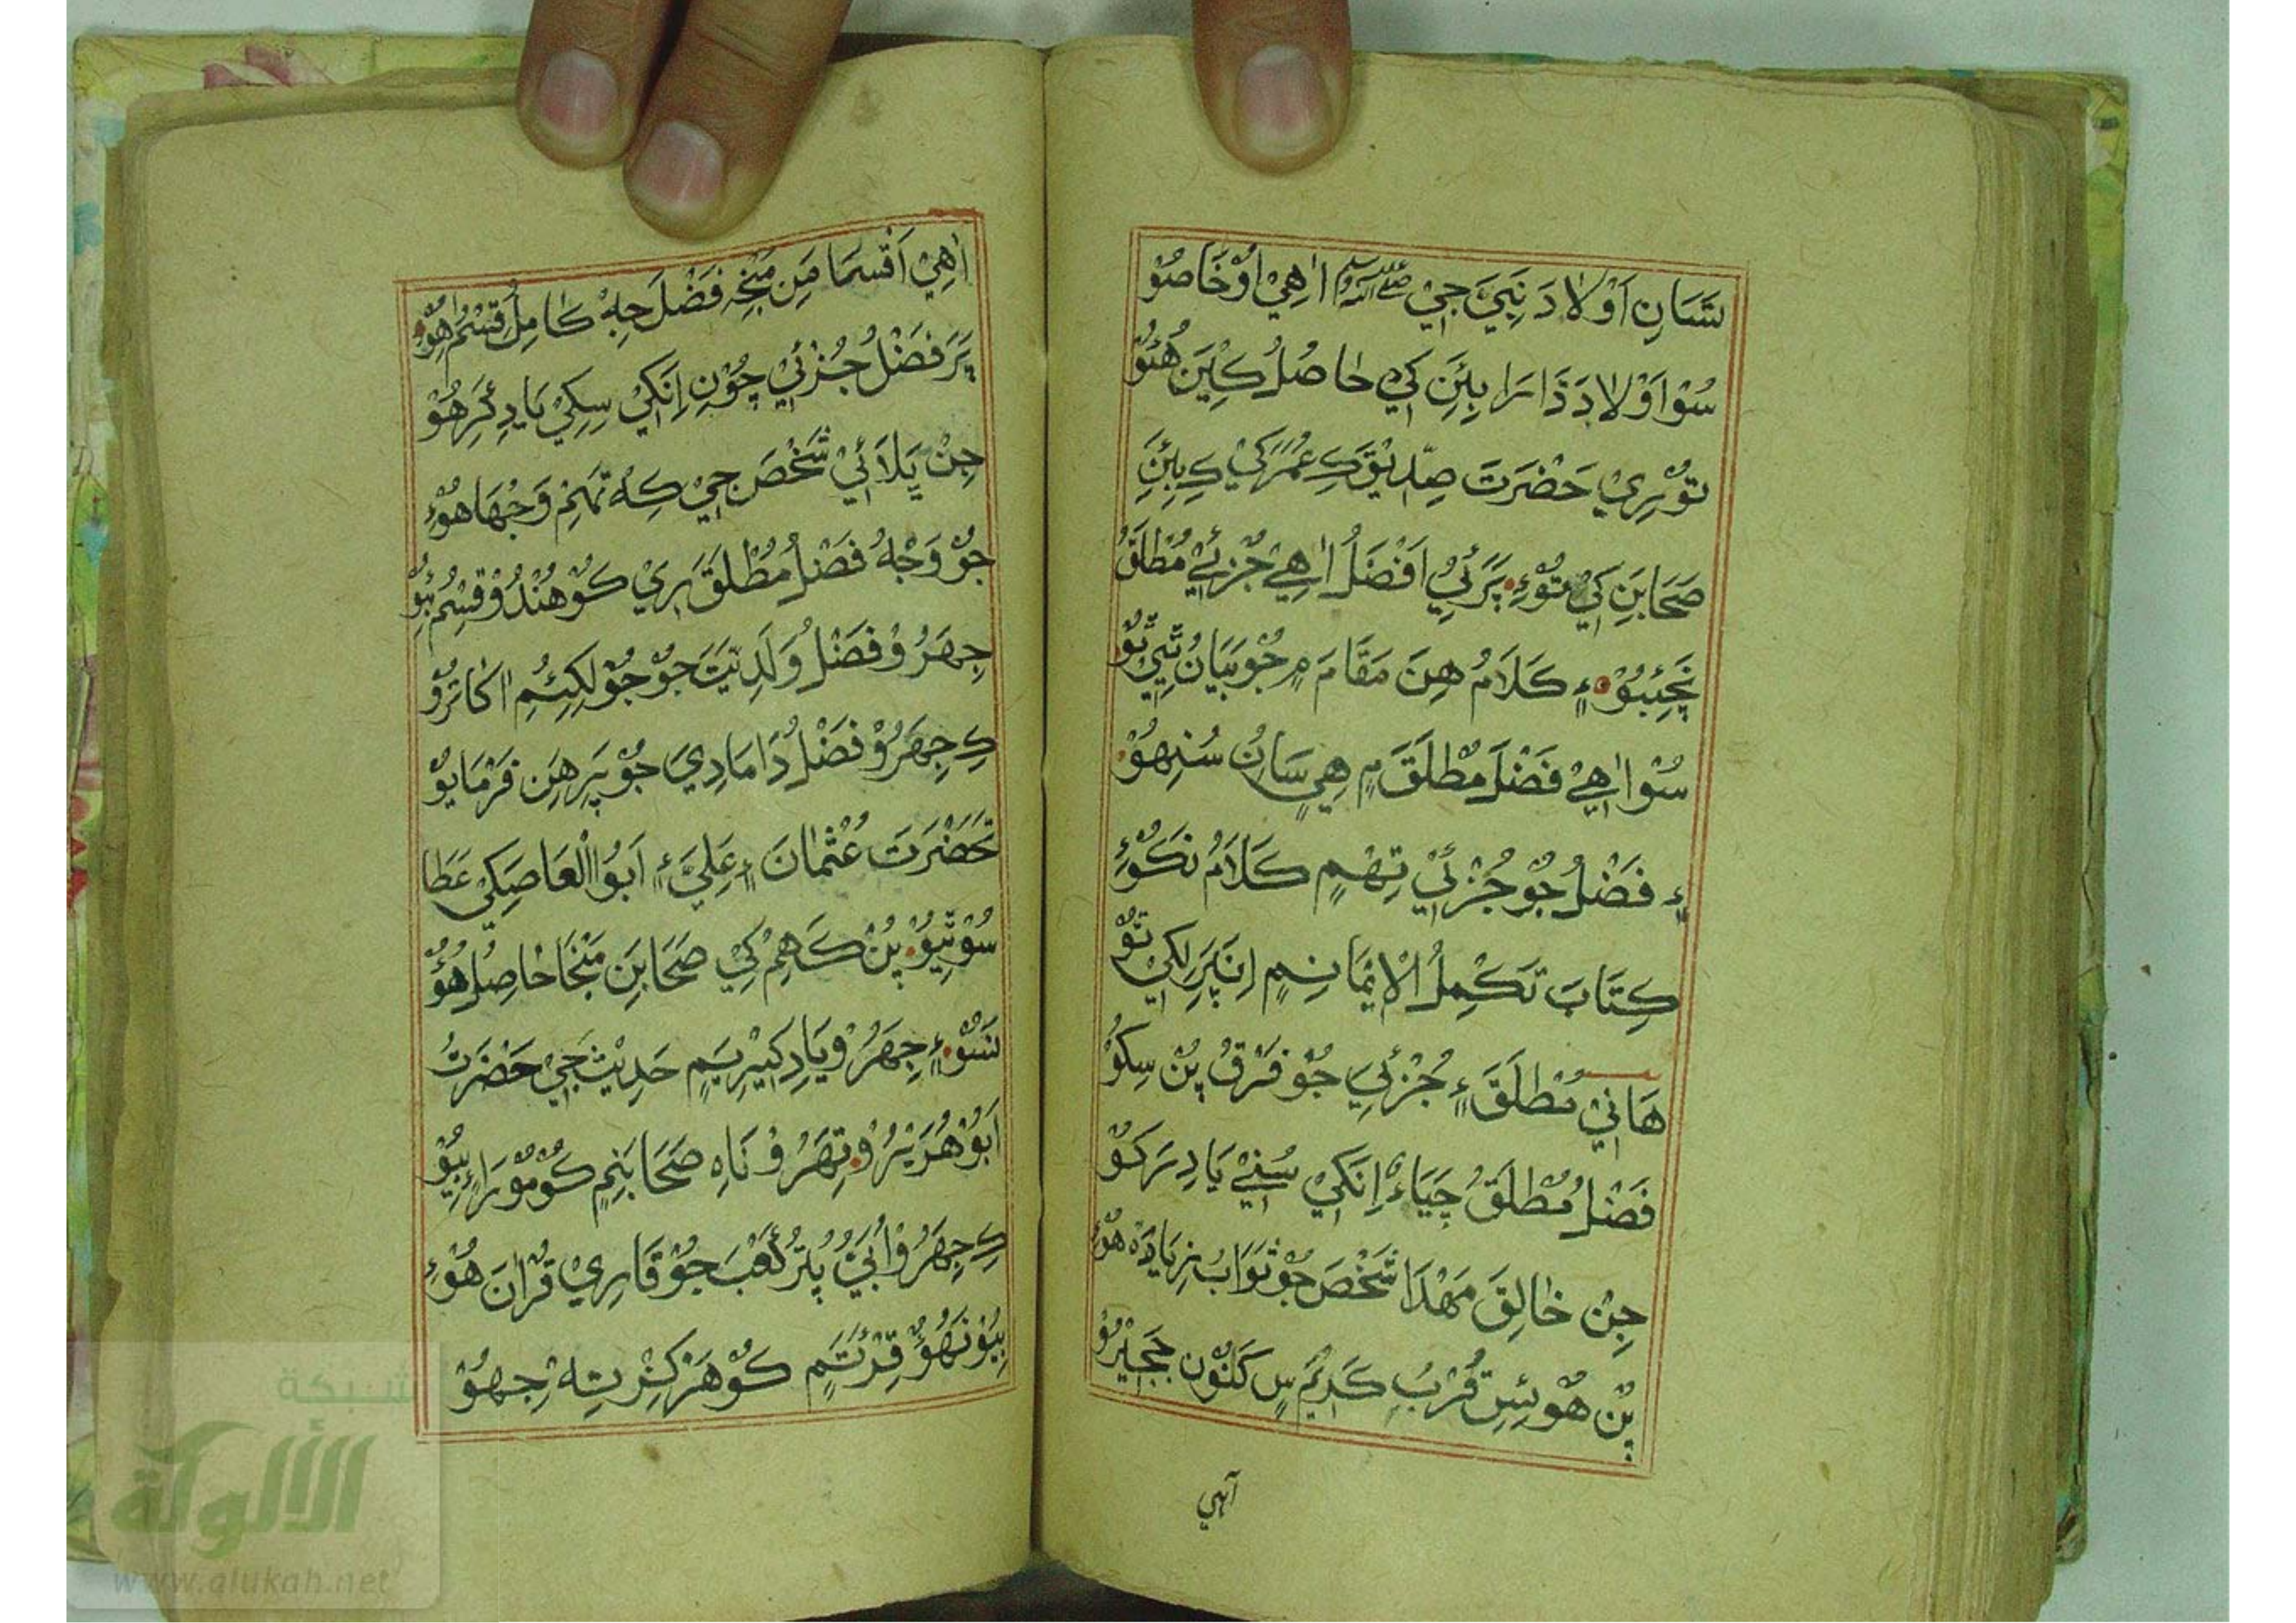 سَّانِ اَوْلَادَ نَبِيَّ جِيْ ﷺ اٰهِيْ اُوْ خَاصُوْ
سُوْ اَوْلَادَ ذَا سَرَا بِئَنِ كَيْ حَاصُلُ كِيْنَ هُئُوْ
تُوْرِيْ حَضْرَتَ صِدِّيْقَ كِ عُمَرَ كَيْ كِ بِئَنِ
صَحَابَنِ كَيْ تُوْءِ پَرَ ئِيْ اَفْضَلُ اٰهِيْ جُزْئِيْ مُطْلَقُ
ءٍ كَلَامُ هِنَ مَقَامَ ۾ جُوْ بَيَانُ ٿِيْ ٿُوْ
سُوْ اٰهِيْ فَضْلَ مُطْلَقَ ۾ هِيْ سَانُ سُنِهُوْ
ءٍ فَضْلُ جُوْ جُزْئِيْ تِهْمٍ كَلَامُ نَكُوْءِ
كِتَابَ تَكْمِلُ الْاِيْمَانِمٍ اِنَ پَرِ لِكِيْ تُوْ
هَاڻِيْ مُطْلَقَ ءٍ جُزْئِيْ جُوْ فَرْقُ پُنْ سِكُوْ
فَضْلُ مُطْلَقُ چَيَاءُ اِنَكِيْ سُڻِيْ يَادِ رَكُوْ
جِنْ خَالِقَ مَهْدَا شَخْصَ جُوْ ثَوَابُ زِيَادَه هُوْءِ
پُنْ هُوْئِسِ قُرْبُ كَرِيْمَ سٍ كَنُّوْن
آهي
اٰهِيْ اَقْسَمَا مَنِ مَنْجِهِ فَضْلَ جِهْ كَامِلُ قِسْمُ اِهُوْ
پَرَ فَضْلُ جُزْئِيْ چُوْنِ اِنَكِيْ سِكِيْ يَادِ ئَرِهُوْ
جِنْ ڀَلَائِيْ شَخْصَ جِيْ كِهْ تَهِمْ وَجْهَا هُوْءِ
جُوْ وَجْهُ فَضْلُ مُطْلَقَ رِيْ كُوْ هُنْدُوْ قِسْمُ ٻِيُوْ
جِهَرُوْ فَضْلُ وَلَدِيَّتَ جُوْ جُوْ لِكِيُمِ اَكَاتَرُوْ
كِ جِهَرُوْ فَضْلُ دَامَادِيَ جُوْ پَرِ هِنَ فَرْمَايُوْ
حَضْرَتَ عُثْمَانَ ءٍ عَلِيَّ ءٍ اَبُو الْعَاصَ كَيْ عَطَا
سُوْ ٿِيُوْ پُنْ كَهِمْ كِيْ صَحَابِنِ مَنْجَا حَاصِلُ هُوُّ
نَسُوْ ءٍ جِهَرُوْ يَادِ كِيْرِيَمٍ حَدِيْثَ جِيْ حَضْرَتُ
اَبُوْ هُرَيْرُوْ تِهَرُوْ نَاهِ صَحَابَنِمٍ كُوْ مُوْرَاءٍ ٻِيُوْ
كِ جِهَرُوْ اُبَيُّ پُٽُرُ كَعْبَ جُوْ قَارِيْ قُرْآنَ هُوْءِ
ٻِيُوْ نَهُوُّ قِرْئَتَمٍ كُوْ هَرْ كِزِ تِهْ جِهُوْ
شبكة
الألوكة
www.alukah.net